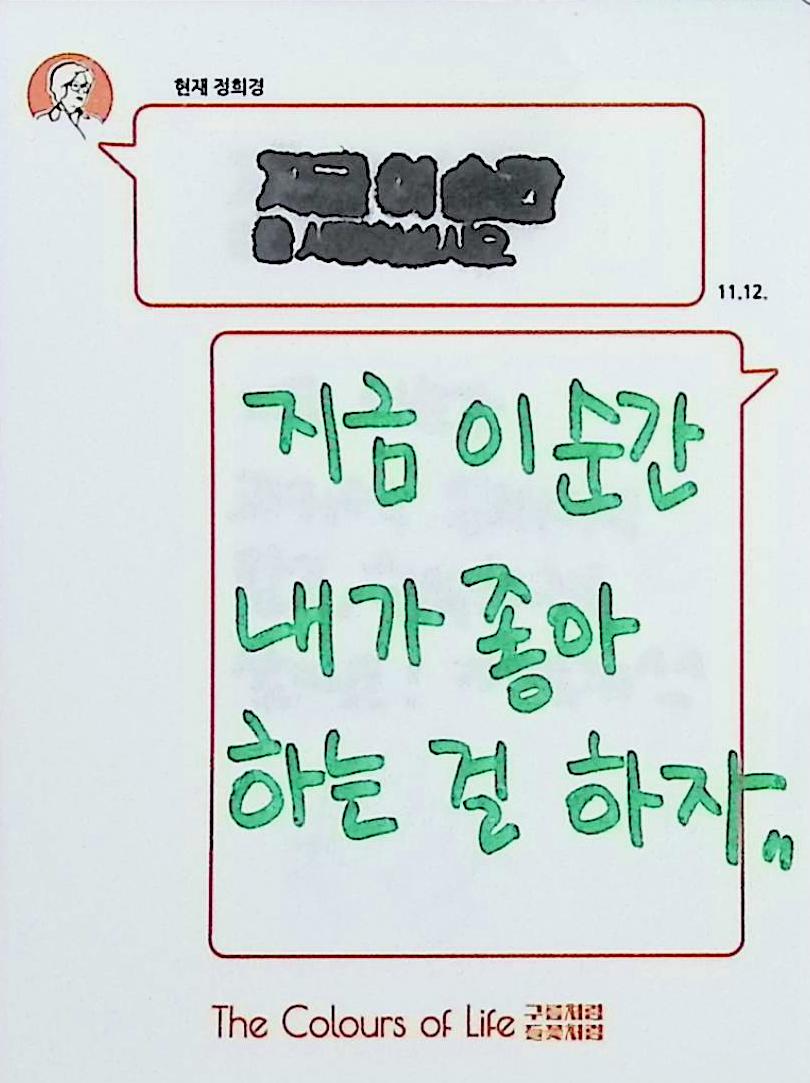 현재 정희경
11.12.
지금 이 순간
내가 좋아
하는 걸 하자
The Colours of Life 구름처럼
들꽃처럼